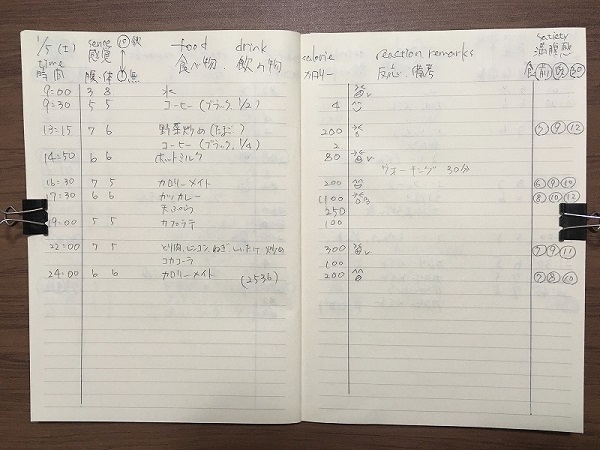 1/5 (土) sense food drink calorie reaction remarks satiety
time 感覚 食べ物・飲み物 カロリー 反応・備考 満腹感
時間 腹・体 無 食 前
9:00 3 8 水
9:30 5 5 コーヒー(ブラック, 1/2) 4
13:15 7 6 野菜炒め(たまご) 200 9 12
コーヒー(ブラック, 1/4) 2
14:50 6 6 ホットミルク 80
ウォーキング 30分
16:30 7 5 カロリーメイト 200 6 9 10
17:30 6 6 カツカレー 1100 8 10 12
天ぷら 250
19:00 5 5 カフェラテ 100
22:00 7 5 とり肉, レンコン, ねぎ, しいたけ 炒め 300 7 9 11
コカコーラ 100
24:00 6 6 カロリーメイト (2536) 200 7 8 10